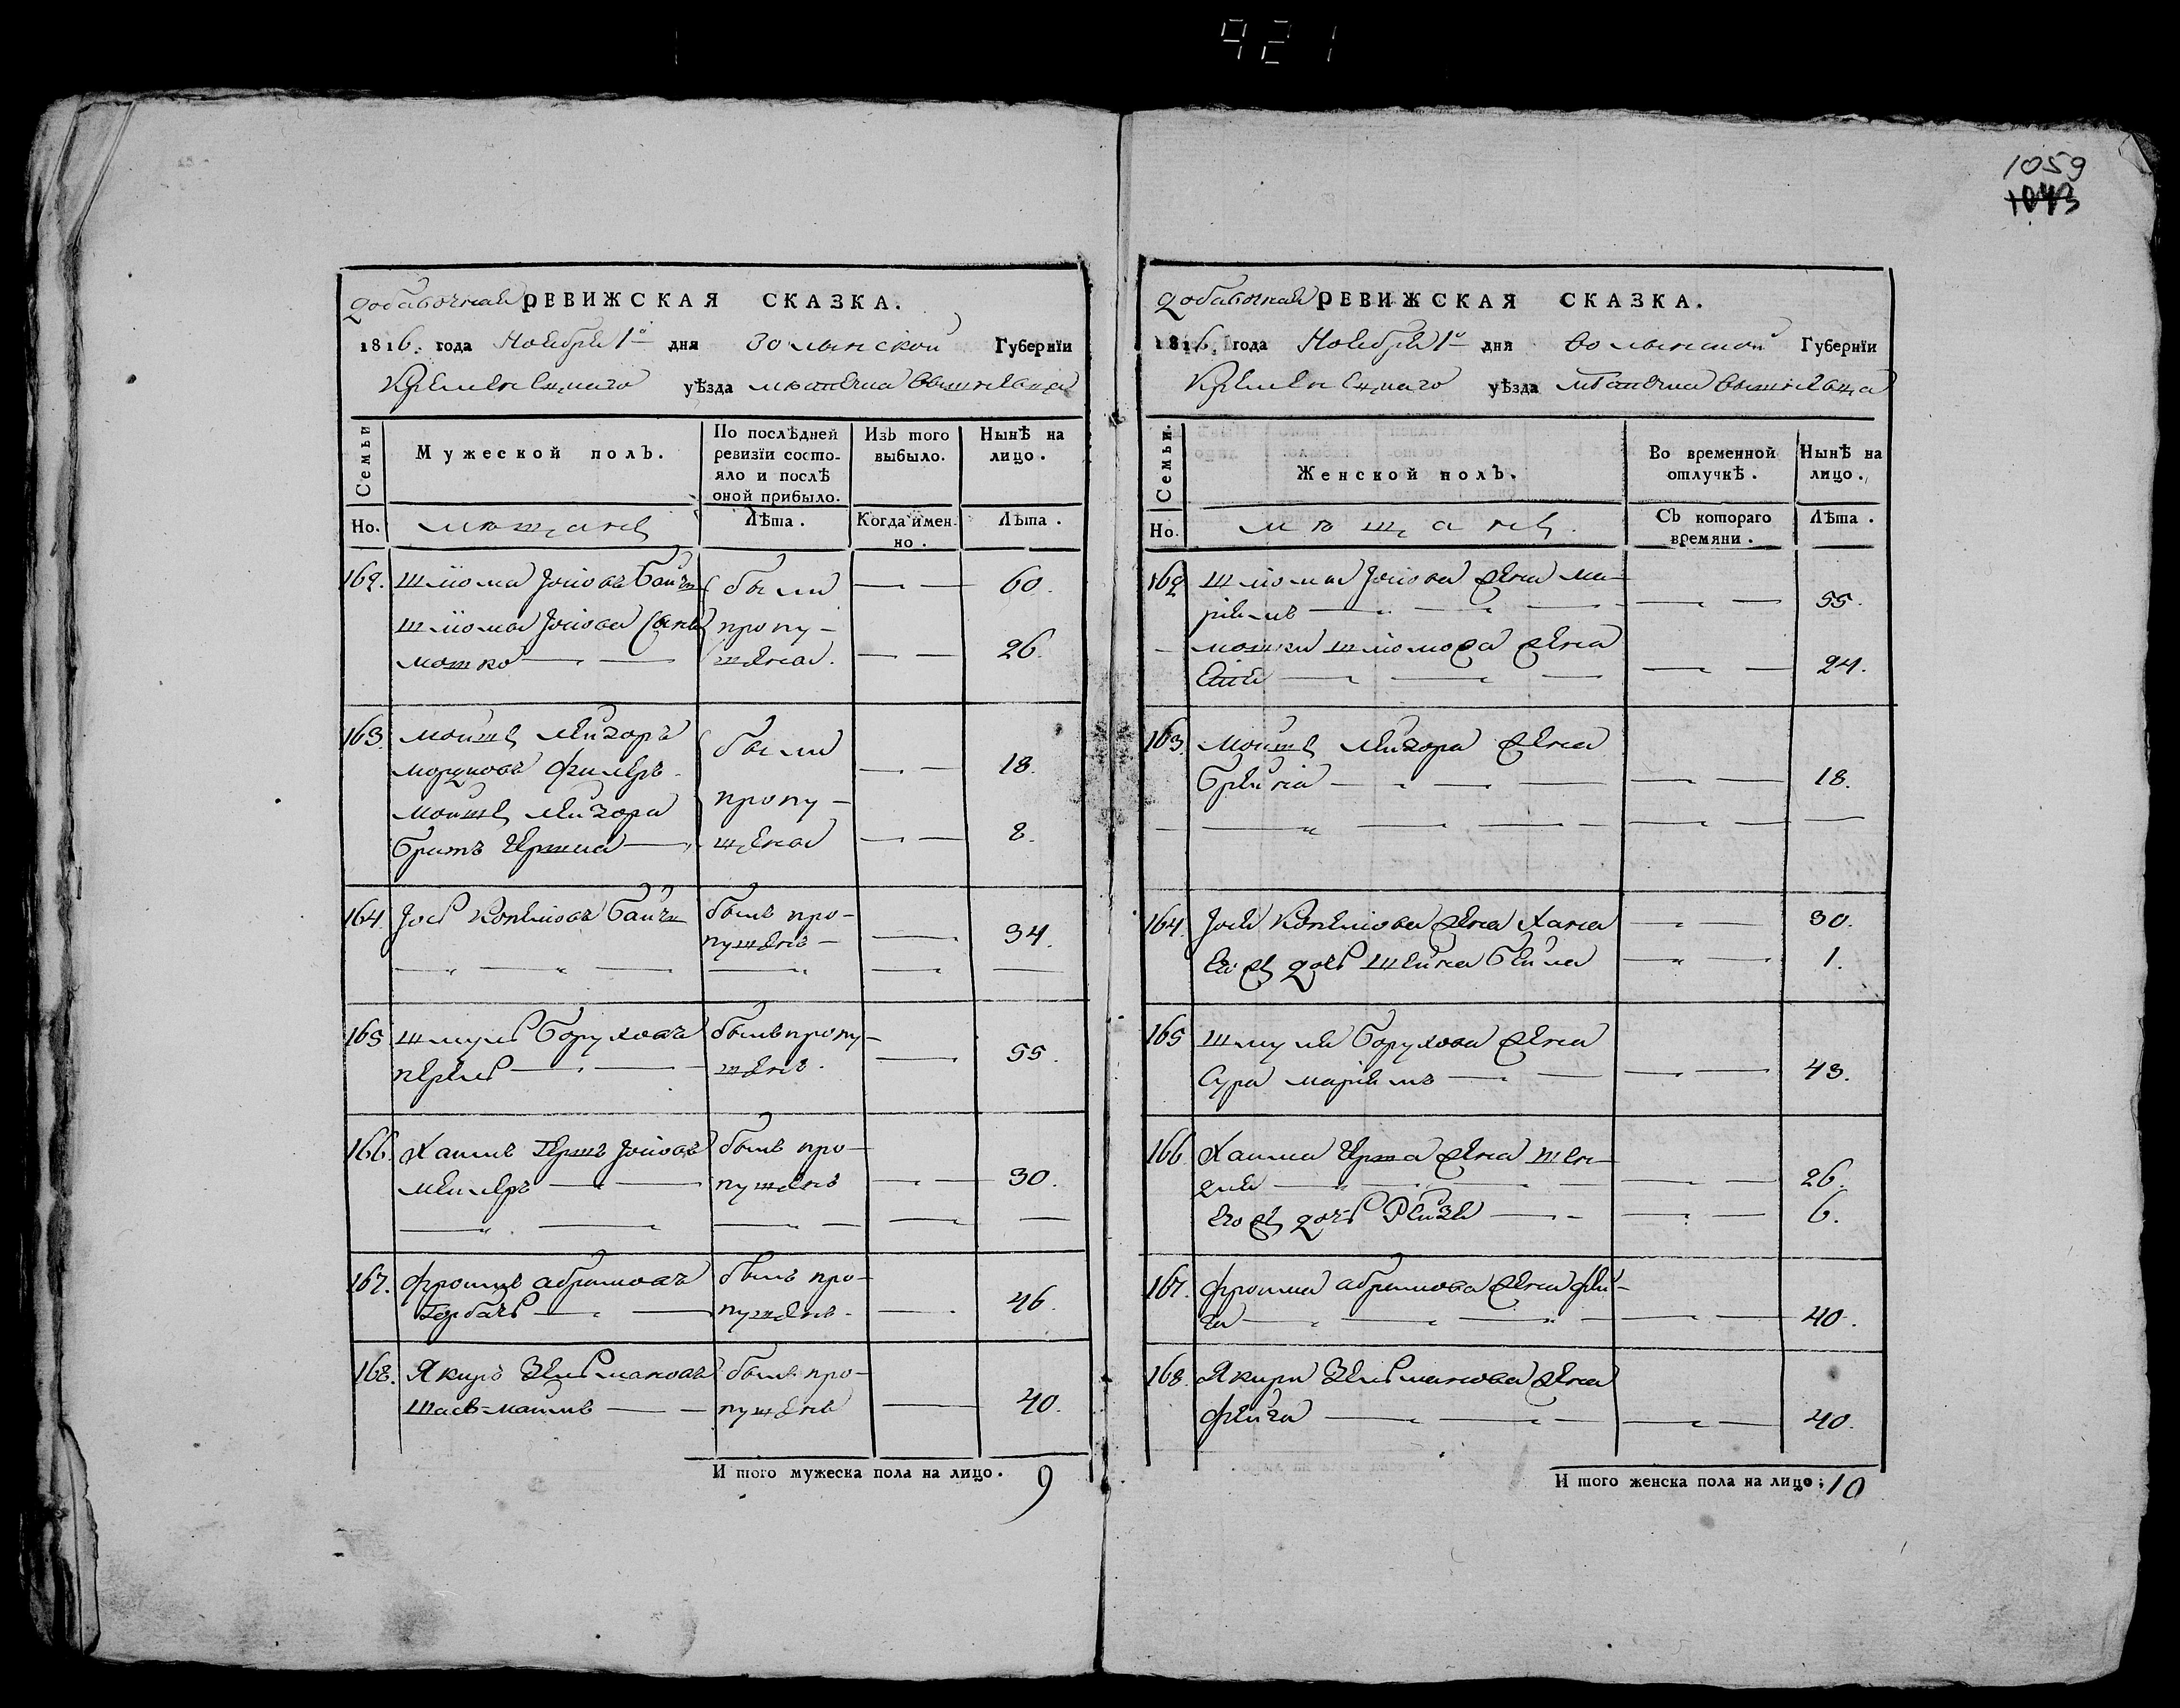 921
1059
1043
добавочная РЕВИЖСКАЯ СКАЗКА.
1816. года Ноября 1го дня Волынской Губерніи
Кременецкаго уѣзда мѣстечка Вышневца
Семьи
Мужеской полъ.
По послѣдней ревизіи состояло и послѣ оной прибыло.
Изъ того выбыло.
Нынѣ на лицо.
Но.
мѣщане
Лѣта.
Когда имен-
но.
Лѣта.
162. Шліома Јосіовъ были — — 60.
Шліома Јосіова сынъ пропу-
Мошко — — щена. — — 26.
163. Мойше Лейзоръ были
Мордковъ — — 18.
Мойше Лейзора пропу-
братъ Гершка — щена — — 8.
164. Јось былъ про-
пущенъ — — 34.
165 Шмуль Боруховъ былъ пропу-
щенъ. — 55.
166. Хаимъ Гершъ Јосіовъ былъ про-
— — пущенъ — — 30.
167. Фроимъ Абрамовъ былъ про-
Горбачь — — пущенъ. — 46.
168. Якиръ Зельмановъ былъ про-
— — пущенъ — 40.
И того мужеска пола на лицо. 9
добавочная РЕВИЖСКАЯ СКАЗКА.
1816. года Ноября 1го дня Волынской Губерніи
Кременецкаго уѣзда мѣстечка Вышневца
Семьи.
Женской полъ.
Во временной отлучкѣ.
Нынѣ на лицо.
Но.
мѣщане.
Съ котораго времяни.
Лѣта.
162 Шліомы Јосіова жена Ма-
ріемъ — — — — — 55.
Мошки Шліомова жена
— — — — — 24.
163. Мойше Лейзора жена
Брейна — — — — — 18.
164. Јося жена Хана — — 30.
Его же дочь Шейна Бейла — — 1.
165 Шмуля Борухова жена
Сура Маріемъ — — — — 43.
166 Хаима Герша жена Шен-
для — — — — — — 26.
Его же дочь Рейзя — — — — 6.
167. Фроима Абрамова жена Фей-
га — — — — — — 40.
168. Якира Зельманова жена
Фейга — — — — — 40.
И того женска пола на лицо; 10